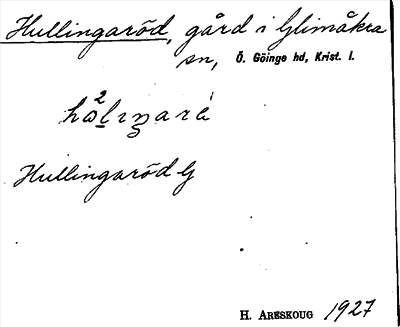 Hullingaröd, gård i Glimåkra
sn, Ö. Göinge hd, Krist. l.
Hullingaröd G
H. Areskoug 1927